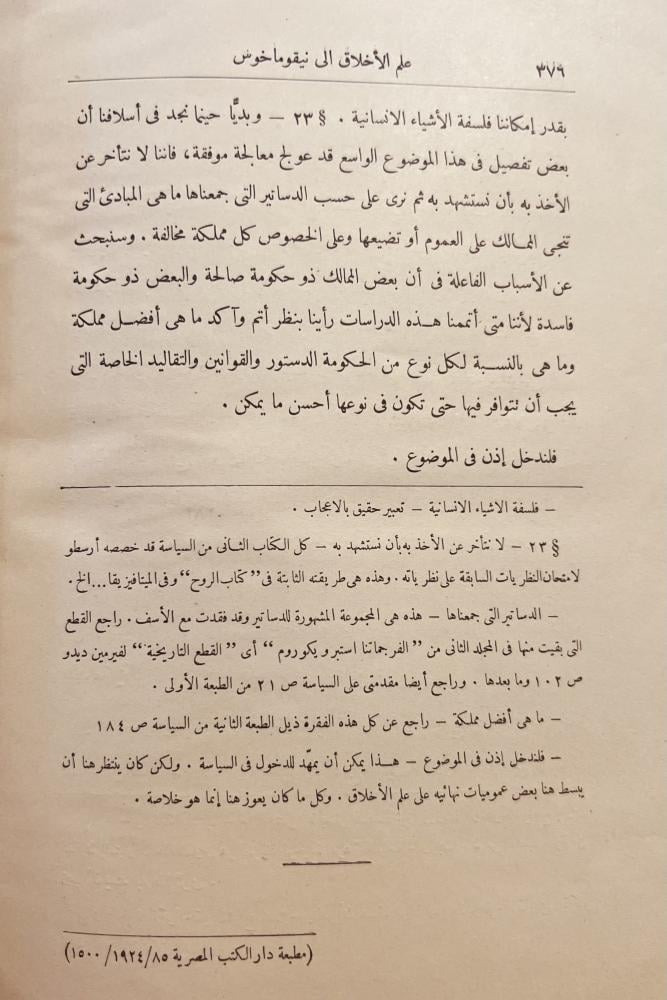 علم الأخلاق الى نيقوماخوس ٣٧٩
بقدر إمكاننا فلسفة الأشياء الانسانية . § ٢٣ – وبديًّا حينما نجد فى أسلافنا أن
بعض تفصيل فى هذا الموضوع الواسع قد عولج معالجة موفقة، فاننا لا نتأخر عن
الأخذ به بأن نستشهد به ثم نرى على حسب الدساتير التى جمعناها ما هى المبادئ التى
تنجى الممالك على العموم أو تضيعها وعلى الخصوص كل مملكة مخالفة . وسنبحث
عن الأسباب الفاعلة فى أن بعض الممالك ذو حكومة صالحة والبعض ذو حكومة
فاسدة لأننا متى أتممنا هذه الدراسات رأينا بنظر أتم وآكد ما هى أفضل مملكة
وما هى بالنسبة لكل نوع من الحكومة الدستور والقوانين والتقاليد الخاصة التى
يجب أن تتوافر فيها حتى تكون فى نوعها أحسن ما يمكن .
فلندخل إذن فى الموضوع .
– فلسفة الاشياء الانسانية – تعبير حقيق بالاعجاب .
§ ٢٣ – لا نتأخر عن الأخذ به بأن نستشهد به – كل الكتاب الثانى من السياسة قد خصصه أرسطو
لامتحان النظريات السابقة على نظرياته . وهذه هى طريقته الثابتة فى "كتاب الروح" وفى الميتافيزيقا ... الخ .
– الدساتير التى جمعناها – هذه هى المجموعة المشهورة للدساتير وقد فقدت مع الأسف . راجع القطع
التى بقيت منها فى المجلد الثانى من "الفرجماتنا استبر و يكوروم" أى "القطع التاريخية" لفيرمين ديدو
ص ١٠٢ وما بعدها . وراجع أيضا مقدمتى على السياسة ص ٢١ من الطبعة الأولى .
– ما هى أفضل مملكة – راجع عن كل هذه الفقرة ذيل الطبعة الثانية من السياسة ص ١٨٤
– فلندخل إذن فى الموضوع – هذا يمكن أن يمهّد للدخول فى السياسة . ولكن كان ينتظر هنا أن
يبسط هنا بعض عموميات نهائيه على علم الأخلاق . وكل ما كان يعوز هنا إنما هو خلاصة .
(مطبعة دار الكتب المصرية ٨٥/١٩٢٤/١٥٠٠)